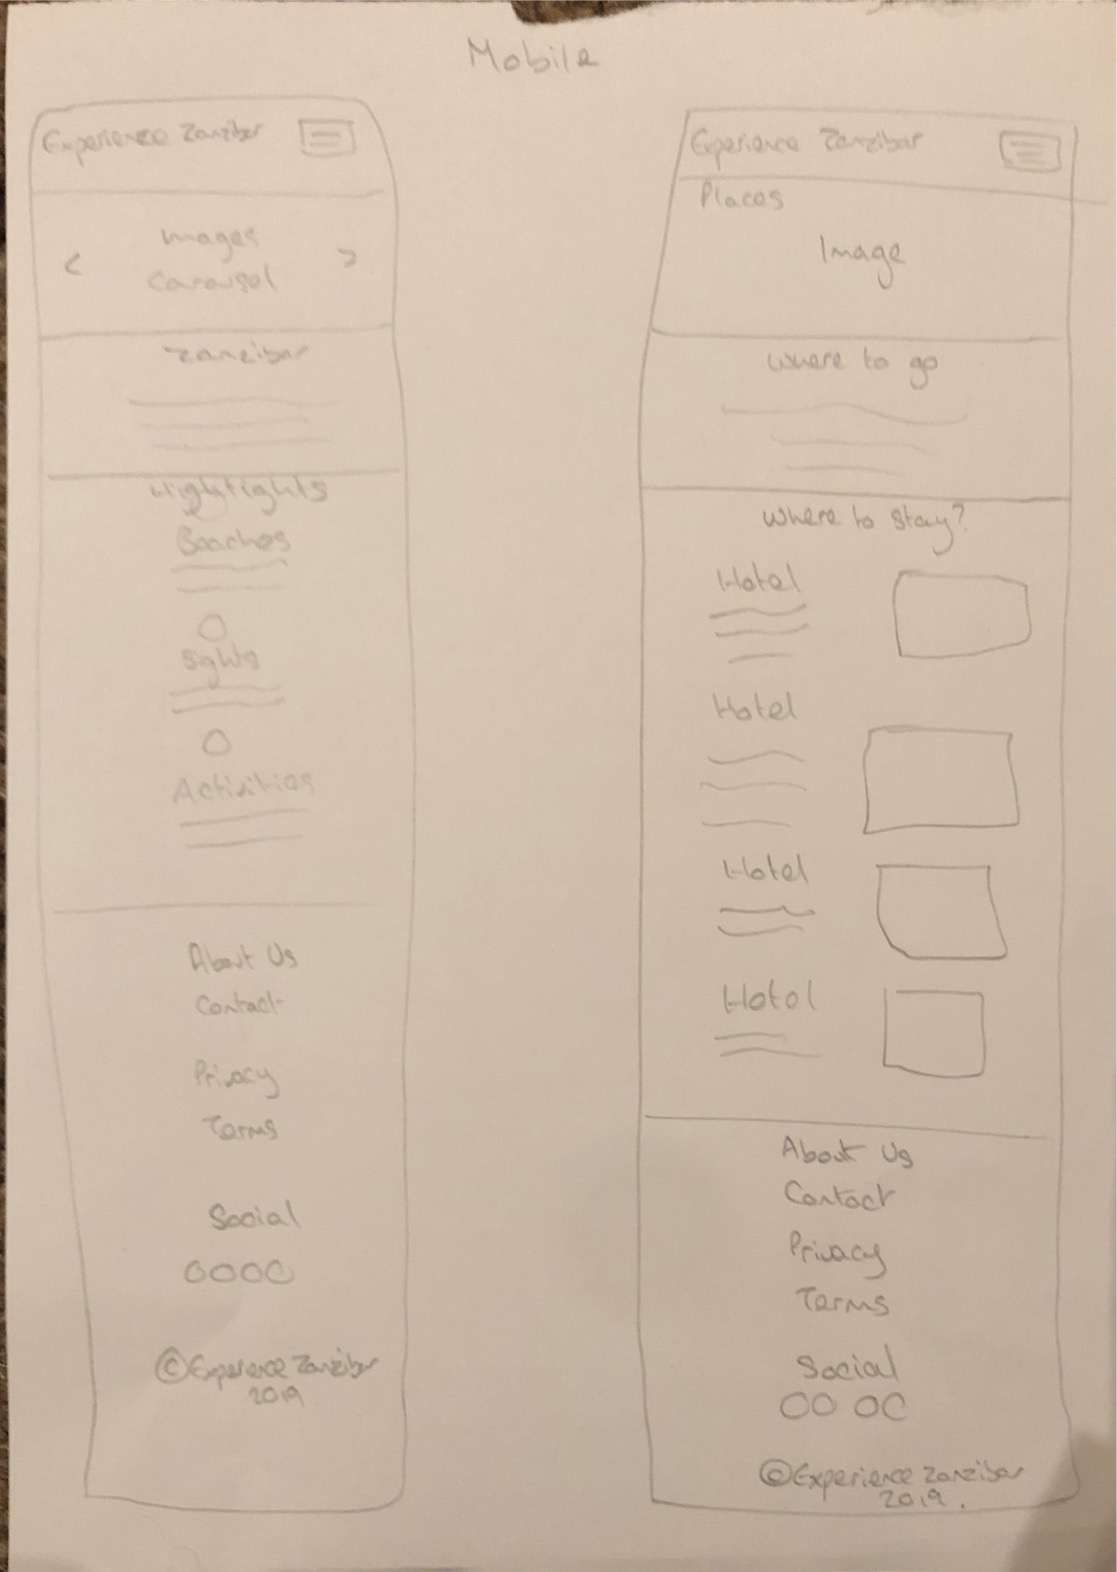 Mobile
Experience Zanzibar
Images
Carousel
< >
Zanzibar
Highlights
Beaches
Sights
Activities
About Us
Contact
Privacy
Terms
Social
©Experience Zanzibar
2019
Experience Zanzibar
Places
Image
Where to go
Where to stay?
Hotel
Hotel
Hotel
Hotel
About Us
Contact
Privacy
Terms
Social
©Experience Zanzibar
2019.